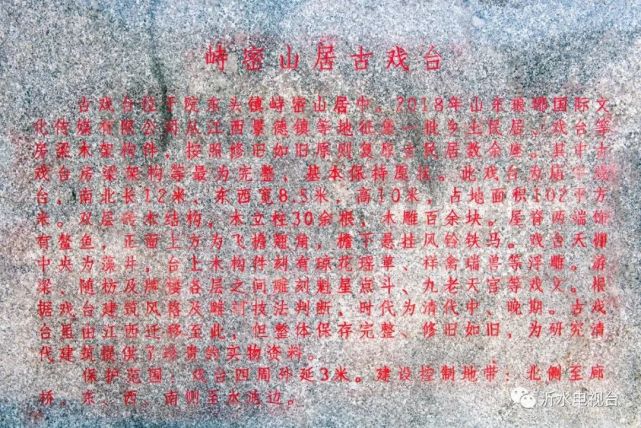 峙密山居古戏台
古戏台位于院东头镇峙密山居中。2018年山东琅琊国际文
化传媒有限公司从江西景德镇等地征集一批乡土民居、戏台等
房梁木架构件，按照修旧如旧原则复原古民居数余座。其中古
戏台房梁架构等最为完整，基本保持原状。此戏台为庙
台，南北长12米、东西宽8.5米，高10米，占地面积102平方
米。双层砖木结构。木立柱30余根，木雕百余块。屋脊两端饰
有鳌鱼，正面上方为飞檐翘角，檐下悬挂风铃铁马。戏台天棚
中央为藻井，台上木构件刻有琼花瑶草、祥禽瑞兽等浮雕。游
梁、随枋及牌楼各层之间雕刻魁星点斗、九老天官等戏文。根
据戏台建筑风格及雕刻技法判断，时代为清代中、晚期。古戏
台虽由江西迁移至此，但整体保存完整、修旧如旧，为研究清
代建筑提供了珍贵的实物资料。
保护范围：戏台四周外延3米。建设控制地带：北侧至廊
桥，东、西、南侧至水池边。
沂水电视台